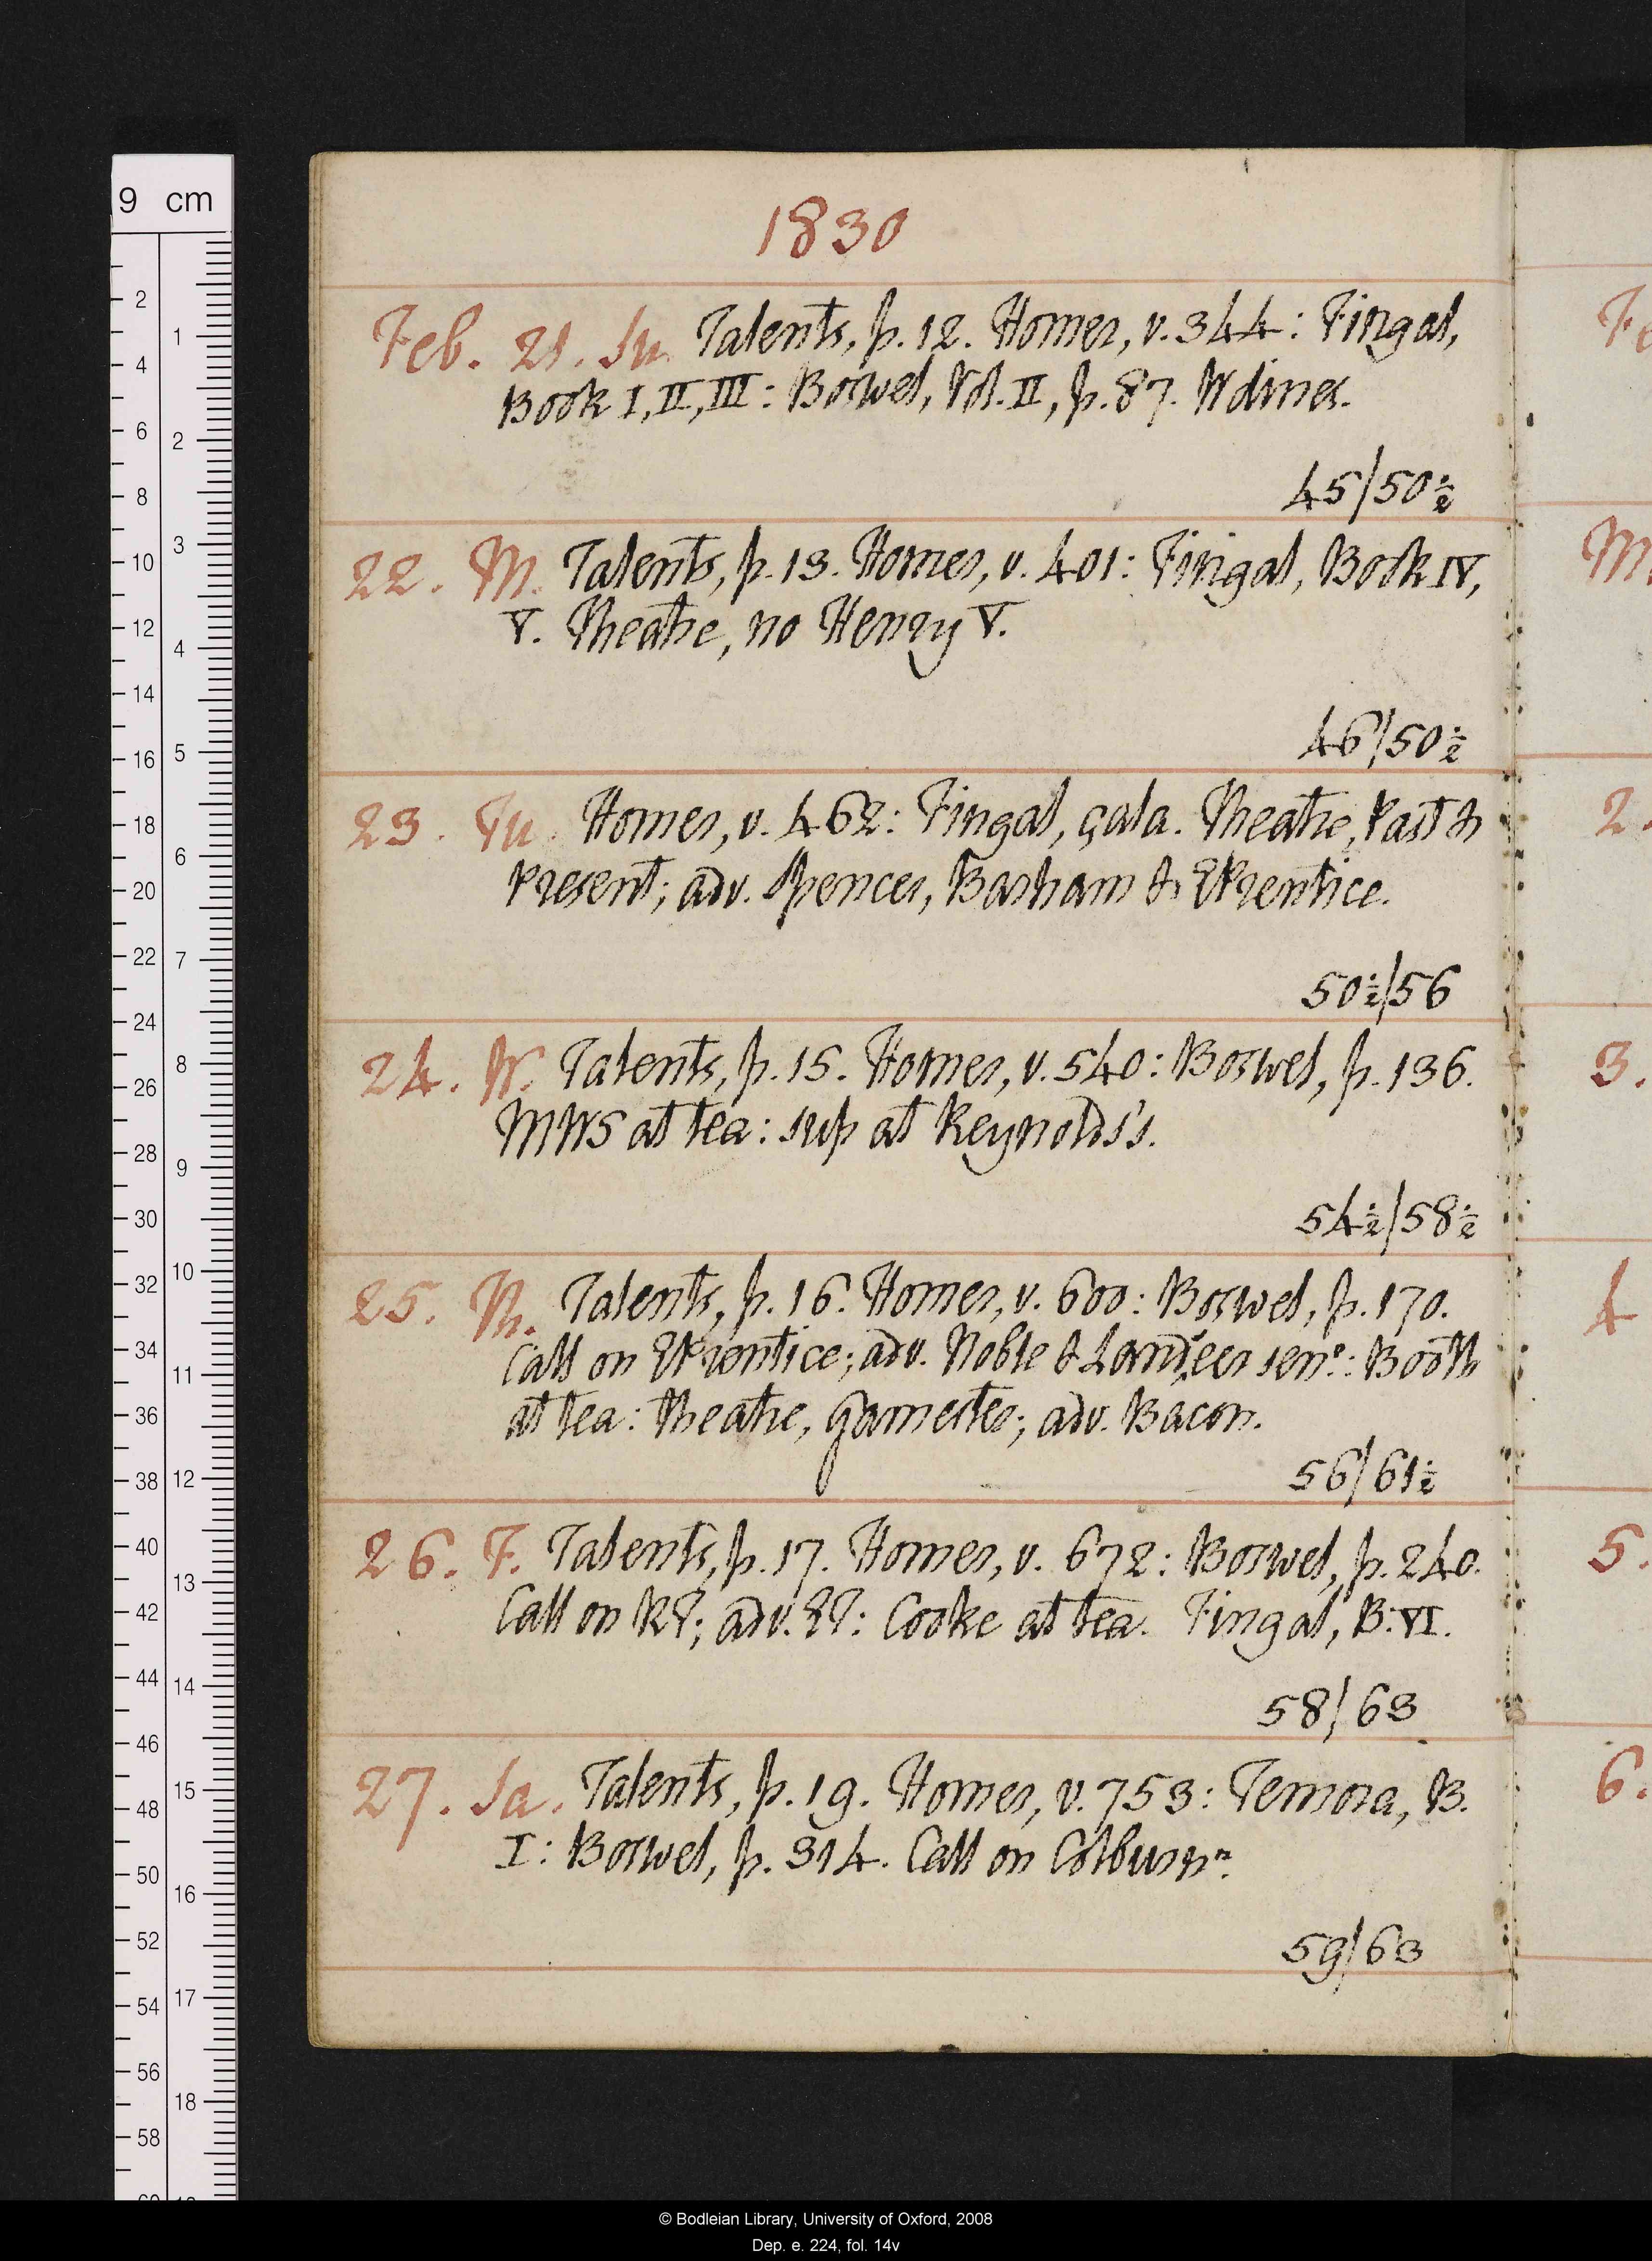 9 cm
1830
Feb. 21. Su. Talents, p. 12. Homer, v. 344: Fingal,
Book I, II, III: Boswel, Vol. II, p. 87. W dines.
45/50½
22. M. Talents, p. 13. Homer, v. 401: Fingal, Book IV,
V. Theatre, no Henry V.
46/50½
23. Tu. Homer, v. 462: Fingal, çala. Theatre, Past &
Present; adv. Spencer, Barham & EPrentice.
50½/56
24. W. Talents, p. 15. Homer, v. 540: Boswel, p. 136.
MWS at tea: sup at Reynolds's.
54½/58½
25. Th. Talents, p. 16. Homer, v. 600: Boswel, p. 170.
Call on EPrentice; adv. Noble & Landseer senr.: Booth
at tea: Theatre, Gamester; adv. Bacon.
56/61½
26. F. Talents, p. 17. Homer, v. 672: Boswel, p. 240.
Call on RT; adv. ET: Cooke at tea. Fingal, B. VI.
58/63
27. Sa. Talents, p. 19. Homer, v. 753: Temora, B.
I: Boswel, p. 314. Call on Colburn n.
59/63
© Bodleian Library, University of Oxford, 2008
Dep. e. 224, fol. 14v